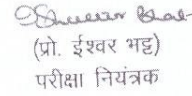 (प्रो. ईश्वर भट्ट)
परीक्षा नियंत्रक